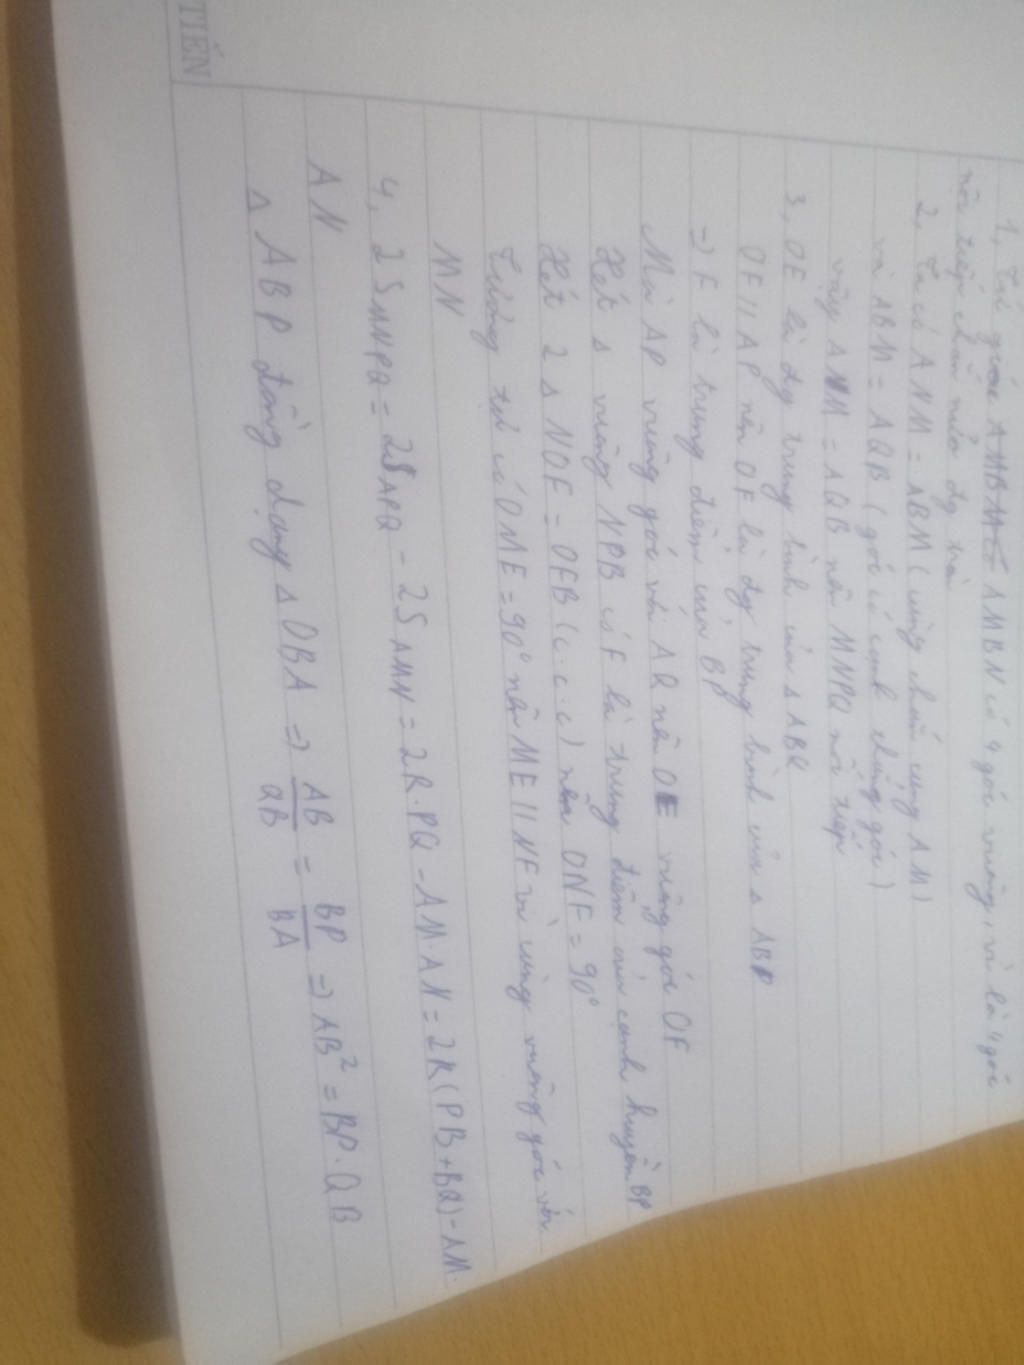 TIẾN
1, Tứ giác AMBN có 4 góc vuông, vì là 4 góc
nội tiếp chắn nửa đg tròn
2, Ta có ANM = ABM (cùng chắn cung AM)
và ABM = AQB (góc có cạnh ⊥ góc)
vậy ANM = AQB nên MNPQ nội tiếp
3, OE là đg trung bình của Δ ABQ
OF // AP nên OF là đg trung bình của Δ ABP
=) F là trung điểm của BP
Mà AP vuông góc với AQ nên OE vuông góc OF
Xét Δ vuông NPB có F là trung điểm của cạnh huyền BP
Xét 2 Δ NOF = OFB (c.c.c) nên ONF = 90°
Tương tự có OME = 90° nên ME // NF vì cùng vuông góc với
MN
4, 2S MNPQ = 2S APQ - 2S AMN = 2R.PQ - AM.AN = 2R(PB+BQ) - AM.
AN
Δ ABP đồng dạng Δ QBA =) AB/QB = BP/BA =) AB² = BP.QB